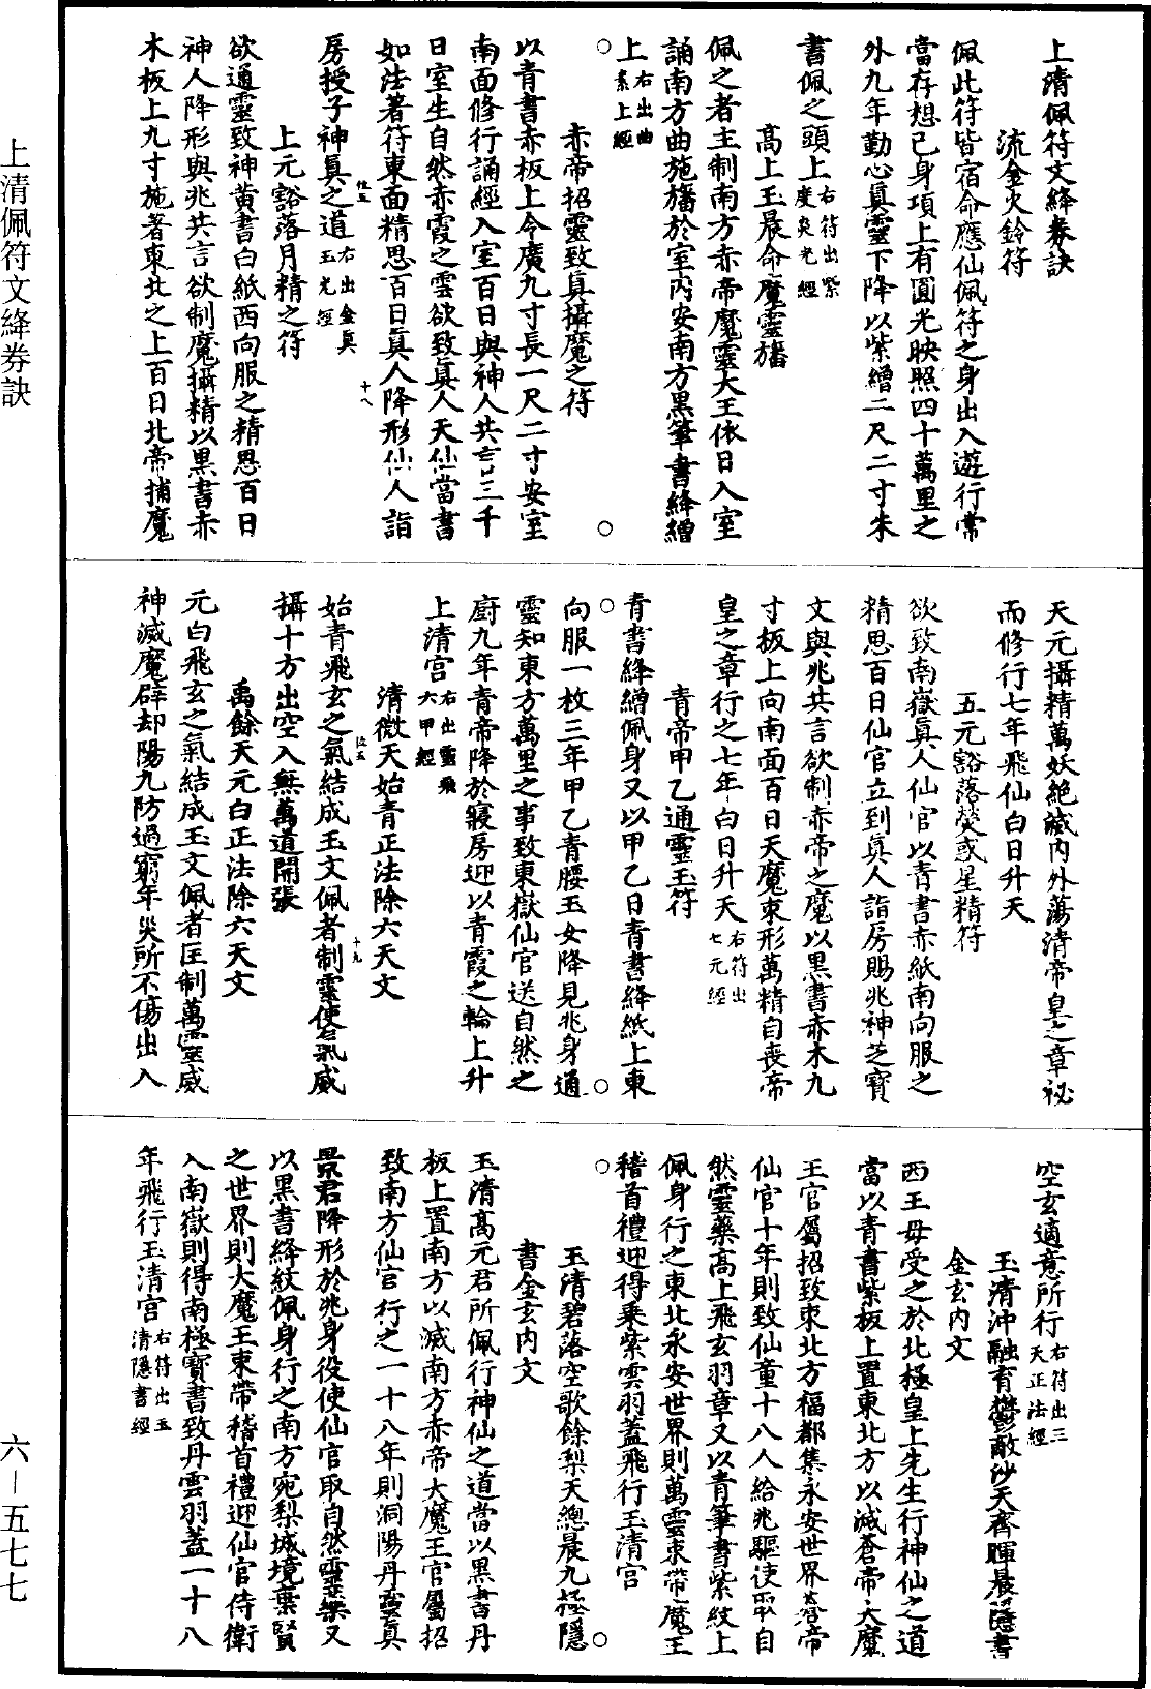 上清佩符文絳券訣
流金火鈴符
佩此符皆宿命應仙佩符之身出入遊行常
當存想己身項上有圓光映照四十萬里之
外九年勤心真靈下降以紫繒二尺二寸朱
書佩之頭上右符出紫度炎光經
高上玉晨命魔靈旛
佩之者主制南方赤帝魔靈大王依日入室
誦南方曲施旛於室內安南方黑筆書絳繒
上右出曲素上經
赤帝招靈致真攝魔之符
以青書赤板上令廣九寸長一尺二寸安室
南面修行誦經入室百日與神人共言三千
日室生自然赤霞之雲欲致真人天仙當書
如法著符東面精思百日真人降形仙人詣
十八
房授子神真之道右出金真玉光經
位五
上元豁落月精之符
欲通靈致神黃書白紙西向服之精思百日
神人降形與兆共言欲制魔攝精以黑書赤
木板上九寸施著東北之上百日北帝捕魔
天元攝精萬妖絕滅內外蕩清帝皇之章祕
而修行七年飛仙白日升天
五元豁落熒惑星精符
欲致南嶽真人仙官以青書赤紙南向服之
精思百日仙官立到真人詣房賜兆神芝寶
文與兆共言欲制赤帝之魔以黑書赤木九
寸板上向南面百日天魔束形萬精自喪帝
皇之章行之七年白日升天右符出七元經
青帝甲乙通靈玉符
青書絳繒佩身又以甲乙日青書絳紙上東
向服一枚三年甲乙青腰玉女降見兆身通
靈知東方萬里之事致東嶽仙官送自然之
廚九年青帝降於寢房迎以青霞之輪上升
上清宮右出靈飛六甲經
清微天始青正法除六天文
始青飛玄之氣結成玉文佩者制靈使炁威
十九
位五
攝十方出空入無萬道開張
禹餘天元白正法除六天文
元白飛玄之氣結成玉文佩者匡制萬靈威
神滅魔辟却陽九防過窮年災所不傷出入
空玄適意所行右符出三天正法經
玉清沖融育鬱敵沙天齊暉晨隱書
金玄內文
西王母受之於北極皇上先生行神仙之道
當以青書紫板上置東北方以滅蒼帝大魔
王官屬招致東北方福都集永安世界蒼帝
仙官十年則致仙童十八人給兆驅使取自
然靈藥高上飛玄羽章又以青筆書紫紋上
佩身行之東北永安世界則萬靈束帶魔王
稽首禮迎得乘紫雲羽蓋飛行玉清宮
玉清碧落空歌餘梨天總晨九極隱
書金玄內文
玉清高元君所佩行神仙之道當以黑書丹
板上置南方以滅南方赤帝大魔王官屬招
致南方仙官行之一十八年則洞陽丹靈真
景君降形於兆身役使仙官取自然靈藥又
以黑書絳紋佩身行之南方宛梨城境棄賢
之世界則大魔王束帶稽首禮迎仙官侍衛
入南嶽則得南極寶書致丹雲羽蓋一十八
年飛行玉清宮右符出玉清隱書經
上清佩符文絳券訣
六—五七七